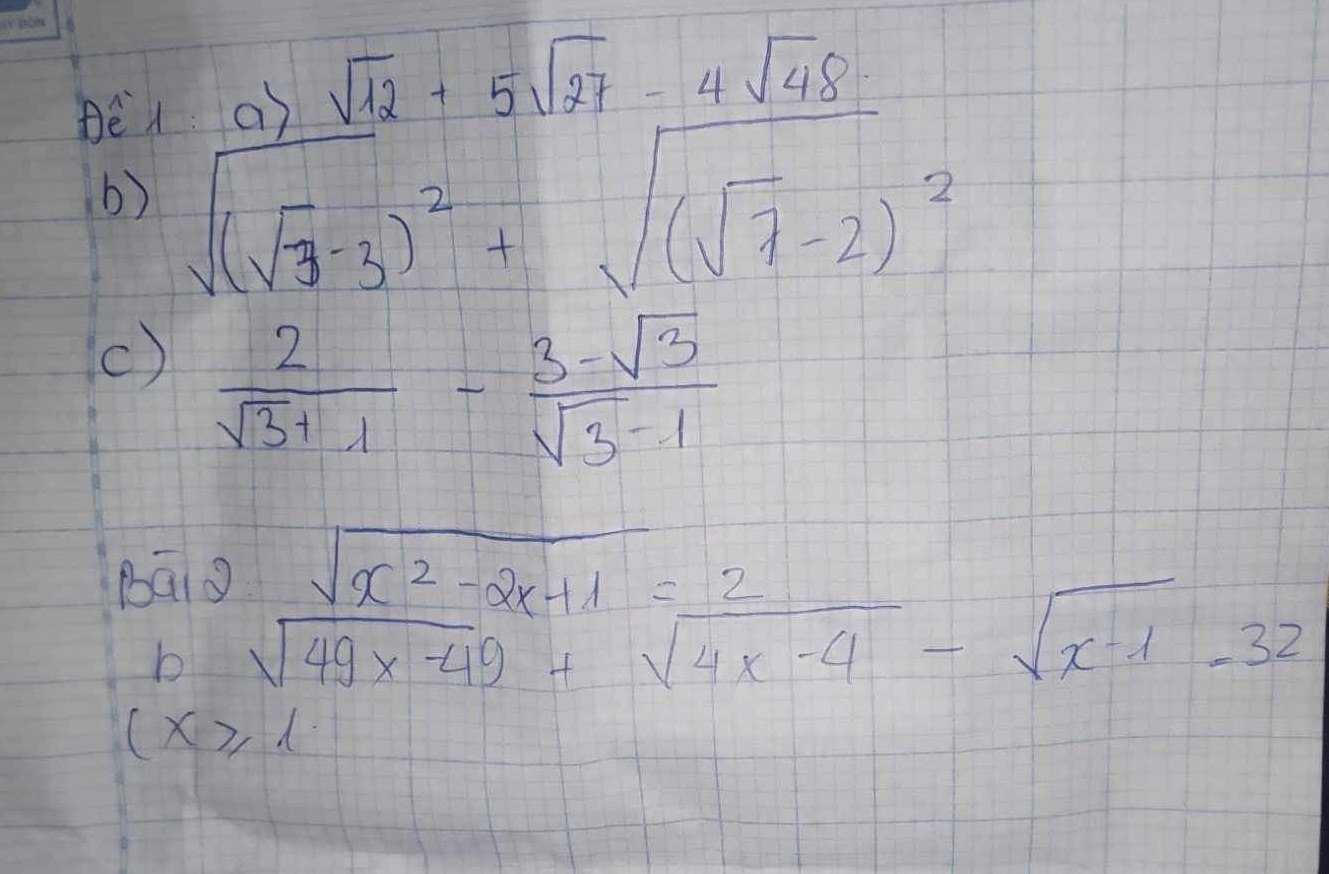 Đề 1: a) √12 + 5√27 - 4√48.
b) √(√7-3)² + √(√7-2)²
c) 2/(√3+1) - (3-√3)/(√3-1)
Bài 2: √x²-2x+1 = 2
b √49x-49 + √4x-4 - √x-1 = 32
(x ⩾ 1.